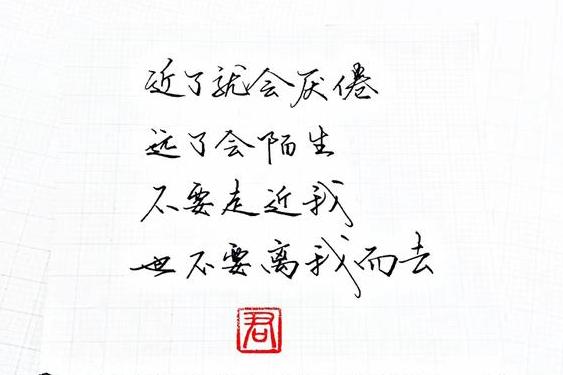 近了就会厌倦
远了会陌生
不要走近我
也不要离我而去
君